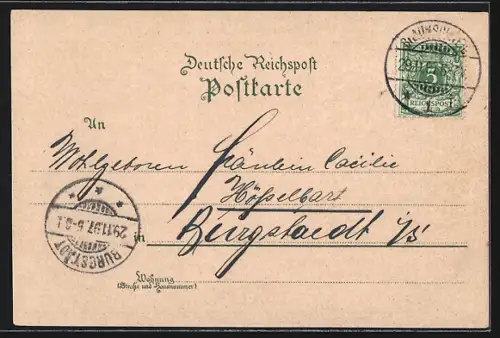 Deutsche Reichspost
Postkarte
5
REICHSPOST
An
Wohlgeboren Fräulein Cäcilie
Höffelbart
in Burgstaedt i/S
BURGSTÄDT
29.11.97. 6-8.
Wohnung
(Straße und Hausnummer)